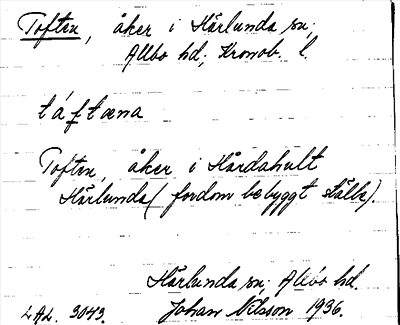 Toften, åker i Härlunda sn;
Allbo hd; Kronob. l.
táftæna
Toften, åker i Hårdahult
Härlunda (fordom bebyggt ställe).
Härlunda sn; Allbo hd.
LAL. 3043. Johan Nilsson 1936.